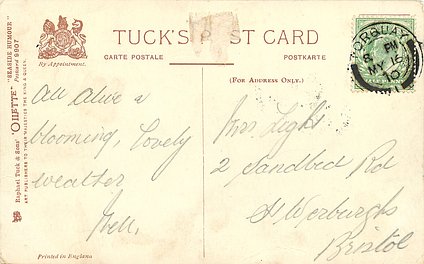 TUCK'S POST CARD
CARTE POSTALE
POSTKARTE
By Appointment.
(FOR ADDRESS ONLY.)
Raphael Tuck & Sons' "OILETTE" "SEASIDE HUMOUR" Postcard 9607
ART PUBLISHERS TO THEIR MAJESTIES THE KING & QUEEN.
TORQUAY
8 PM
MY 16
10
All alive &
blooming, lovely
weather
Nell.
Mrs Light
2 Sandbed Rd
St Werburghs
Bristol
Printed in England